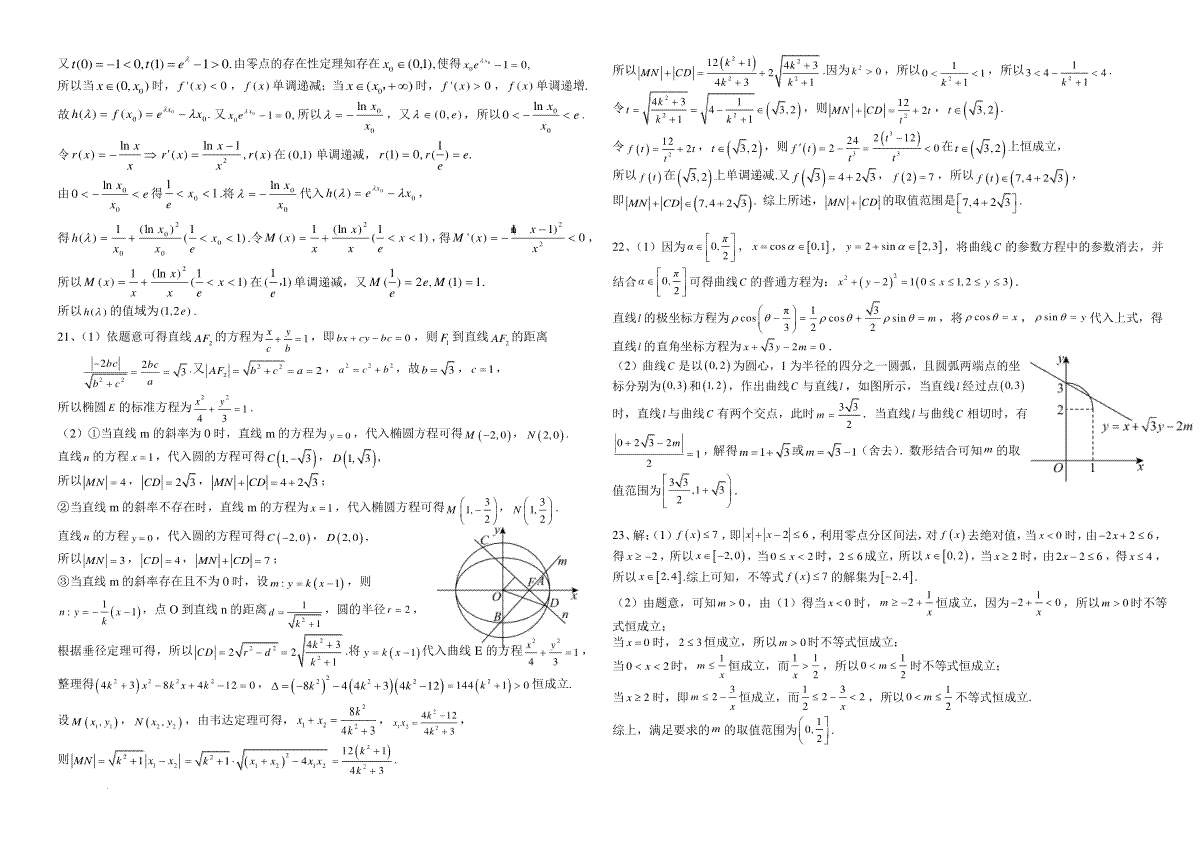 又t(0)=−1<0,t(1)=e^λ−1>0.由零点的存在性定理知存在x₀∈(0,1),使得x₀e^{λx₀}−1=0,
所以当x∈(0,x₀)时，f'(x)<0，f(x)单调递减；当x∈(x₀,+∞)时，f'(x)>0，f(x)单调递增.
故h(λ)=f(x₀)=e^{λx₀}−λx₀.又x₀e^{λx₀}−1=0,所以λ=−ln x₀/x₀，又λ∈(0,e)，所以0<−ln x₀/x₀<e.
令r(x)=−ln x/x⇒r'(x)=(ln x−1)/x²,r(x)在(0,1)单调递减，r(1)=0,r(1/e)=e.
由0<−ln x₀/x₀<e得1/e<x₀<1.将λ=−ln x₀/x₀代入h(λ)=e^{λx₀}−λx₀，
得h(λ)=1/x₀+(ln x₀)²/x₀(1/e<x₀<1).令M(x)=1/x+(ln x)²/x(1/e<x<1)，得M'(x)=−(ln x−1)²/x²<0，
所以M(x)=1/x+(ln x)²/x(1/e<x<1)在(1/e,1)单调递减，又M(1/e)=2e,M(1)=1.
所以h(λ)的值域为(1,2e).
21、（1）依题意可得直线AF₂的方程为x/c+y/b=1，即bx+cy−bc=0，则F₁到直线AF₂的距离
|−2bc|/√(b²+c²)=2bc/a=√3.又|AF₂|=√(b²+c²)=a=2，a²=c²+b²，故b=√3，c=1，
所以椭圆E的标准方程为x²/4+y²/3=1.
（2）①当直线m的斜率为0时，直线m的方程为y=0，代入椭圆方程可得M(−2,0)，N(2,0).
直线n的方程x=1，代入圆的方程可得C(1,−√3)，D(1,√3)，
所以|MN|=4，|CD|=2√3，|MN|+|CD|=4+2√3；
②当直线m的斜率不存在时，直线m的方程为x=1，代入椭圆方程可得M(1,−3/2)，N(1,3/2).
直线n的方程y=0，代入圆的方程可得C(−2,0)，D(2,0)，
所以|MN|=3，|CD|=4，|MN|+|CD|=7；
③当直线m的斜率存在且不为0时，设m:y=k(x−1)，则
n:y=−1/k(x−1)，点O到直线n的距离d=1/√(k²+1)，圆的半径r=2，
y
C
m
O
F
A
x
D
B
n
根据垂径定理可得，所以|CD|=2√(r²−d²)=2√((4k²+3)/(k²+1)).将y=k(x−1)代入曲线E的方程x²/4+y²/3=1，
整理得(4k²+3)x²−8k²x+4k²−12=0，Δ=(−8k²)²−4(4k²+3)(4k²−12)=144(k²+1)>0恒成立.
设M(x₁,y₁)，N(x₂,y₂)，由韦达定理可得，x₁+x₂=8k²/(4k²+3)，x₁x₂=(4k²−12)/(4k²+3)，
则|MN|=√(k²+1)|x₁−x₂|=√(k²+1)·√((x₁+x₂)²−4x₁x₂)=12(k²+1)/(4k²+3).
所以|MN|+|CD|=12(k²+1)/(4k²+3)+2√((4k²+3)/(k²+1)).因为k²>0，所以0<1/(k²+1)<1，所以3<4−1/(k²+1)<4.
令t=√((4k²+3)/(k²+1))=√(4−1/(k²+1))∈(√3,2)，则|MN|+|CD|=12/t²+2t，t∈(√3,2).
令f(t)=12/t²+2t，t∈(√3,2)，则f'(t)=2−24/t³=2(t³−12)/t³<0在t∈(√3,2)上恒成立，
所以f(t)在(√3,2)上单调递减.又f(√3)=4+2√3，f(2)=7，所以f(t)∈(7,4+2√3)，
即|MN|+|CD|∈(7,4+2√3).综上所述，|MN|+|CD|的取值范围是[7,4+2√3].
22、（1）因为α∈[0,π/2]，x=cosα∈[0,1]，y=2+sinα∈[2,3]，将曲线C的参数方程中的参数消去，并
结合α∈[0,π/2]可得曲线C的普通方程为：x²+(y−2)²=1(0≤x≤1,2≤y≤3).
直线l的极坐标方程为ρcos(θ−π/3)=1/2ρcosθ+√3/2ρsinθ=m，将ρcosθ=x，ρsinθ=y代入上式，得
直线l的直角坐标方程为x+√3y−2m=0.
（2）曲线C是以(0,2)为圆心，1为半径的四分之一圆弧，且圆弧两端点的坐
标分别为(0,3)和(1,2)，作出曲线C与直线l，如图所示，当直线l经过点(0,3)
时，直线l与曲线C有两个交点，此时m=3√3/2．当直线l与曲线C相切时，有
|0+2√3−2m|/2=1，解得m=1+√3或m=√3−1（舍去）．数形结合可知m的取
值范围为[3√3/2,1+√3).
y
3
2
y=x+√3y−2m
O
1
x
23、解：（1）f(x)≤7，即|x|+|x−2|≤6，利用零点分区间法，对f(x)去绝对值，当x<0时，由−2x+2≤6，
得x≥−2，所以x∈[−2,0)，当0≤x<2时，2≤6成立，所以x∈[0,2)，当x≥2时，由2x−2≤6，得x≤4，
所以x∈[2,4].综上可知，不等式f(x)≤7的解集为[−2,4].
（2）由题意，可知m>0，由（1）得当x<0时，m≥−2+1/x恒成立，因为−2+1/x<0，所以m>0时不等
式恒成立；
当x=0时，2≤3恒成立，所以m>0时不等式恒成立；
当0<x<2时，m≤1/x恒成立，而1/x>1/2，所以0<m≤1/2时不等式恒成立；
当x≥2时，即m≤2−3/x恒成立，而1/2≤2−3/x<2，所以0<m≤1/2不等式恒成立.
综上，满足要求的m的取值范围为(0,1/2].